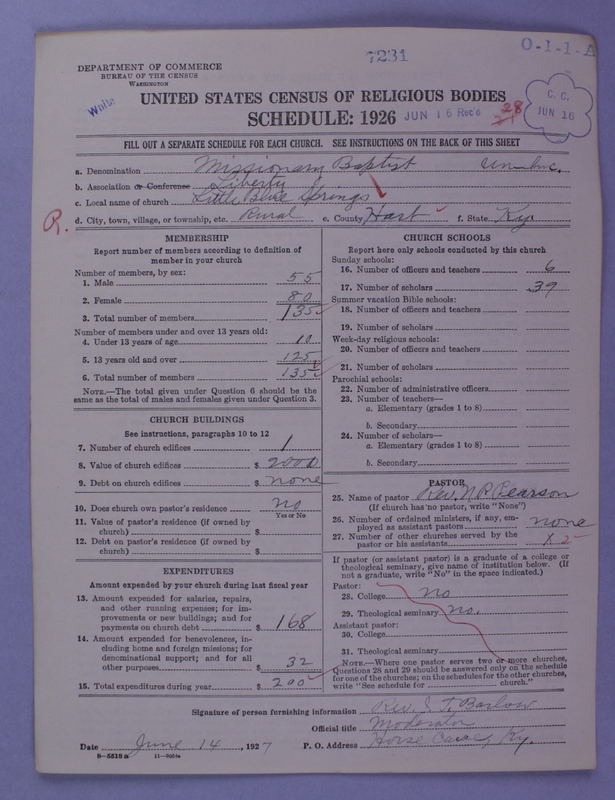 7231
0-1-1-A
DEPARTMENT OF COMMERCE
BUREAU OF THE CENSUS
WASHINGTON
White
UNITED STATES CENSUS OF RELIGIOUS BODIES
SCHEDULE: 1926 JUN 16 Rec'd 28
21
C. C.
JUN 16
FILL OUT A SEPARATE SCHEDULE FOR EACH CHURCH. SEE INSTRUCTIONS ON THE BACK OF THIS SHEET
a. Denomination Missionary Baptist Un-Inc.
b. Association or Conference Liberty
c. Local name of church Little Blue Springs
R.
d. City, town, village, or township, etc. Rural e. County Hart f. State Ky
MEMBERSHIP
Report number of members according to definition of
member in your church
Number of members, by sex:
1. Male 55
2. Female 80
3. Total number of members 135
Number of members under and over 13 years old:
4. Under 13 years of age 10
5. 13 years old and over 125
6. Total number of members 135
NOTE.—The total given under Question 6 should be the
same as the total of males and females given under Question 3.
CHURCH BUILDINGS
See instructions, paragraphs 10 to 12
7. Number of church edifices 1
8. Value of church edifices $ 2000
9. Debt on church edifices $ none
10. Does church own pastor's residence no
Yes or No
11. Value of pastor's residence (if owned by
church) $
12. Debt on pastor's residence (if owned by
church) $
EXPENDITURES
Amount expended by your church during last fiscal year
13. Amount expended for salaries, repairs,
and other running expenses; for im-
provements or new buildings; and for
payments on church debt $ 168
14. Amount expended for benevolences, in-
cluding home and foreign missions; for
denominational support; and for all
other purposes $ 32
15. Total expenditures during year $ 200
CHURCH SCHOOLS
Report here only schools conducted by this church
Sunday schools:
16. Number of officers and teachers 6
17. Number of scholars 39
Summer vacation Bible schools:
18. Number of officers and teachers
19. Number of scholars
Week-day religious schools:
20. Number of officers and teachers
21. Number of scholars
Parochial schools:
22. Number of administrative officers
23. Number of teachers—
a. Elementary (grades 1 to 8)
b. Secondary
24. Number of scholars—
a. Elementary (grades 1 to 8)
b. Secondary
PASTOR
25. Name of pastor Rev. N. P. Pearson
(If church has no pastor, write "None")
26. Number of ordained ministers, if any, em-
ployed as assistant pastors none
27. Number of other churches served by the
pastor or his assistants 2
If pastor (or assistant pastor) is a graduate of a college or
theological seminary, give name of institution below. (If
not a graduate, write "No" in the space indicated.)
Pastor:
28. College no
29. Theological seminary no.
Assistant pastor:
30. College
31. Theological seminary
NOTE.—Where one pastor serves two or more churches,
Questions 28 and 29 should be answered only on the schedule
for one of the churches; on the schedules for the other churches,
write "See schedule for church."
Signature of person furnishing information Rev. S. T. Barlow
Official title Moderator
Date June 14, 1927 P. O. Address Horse Cave, Ky.
8-5518a 11-9864a